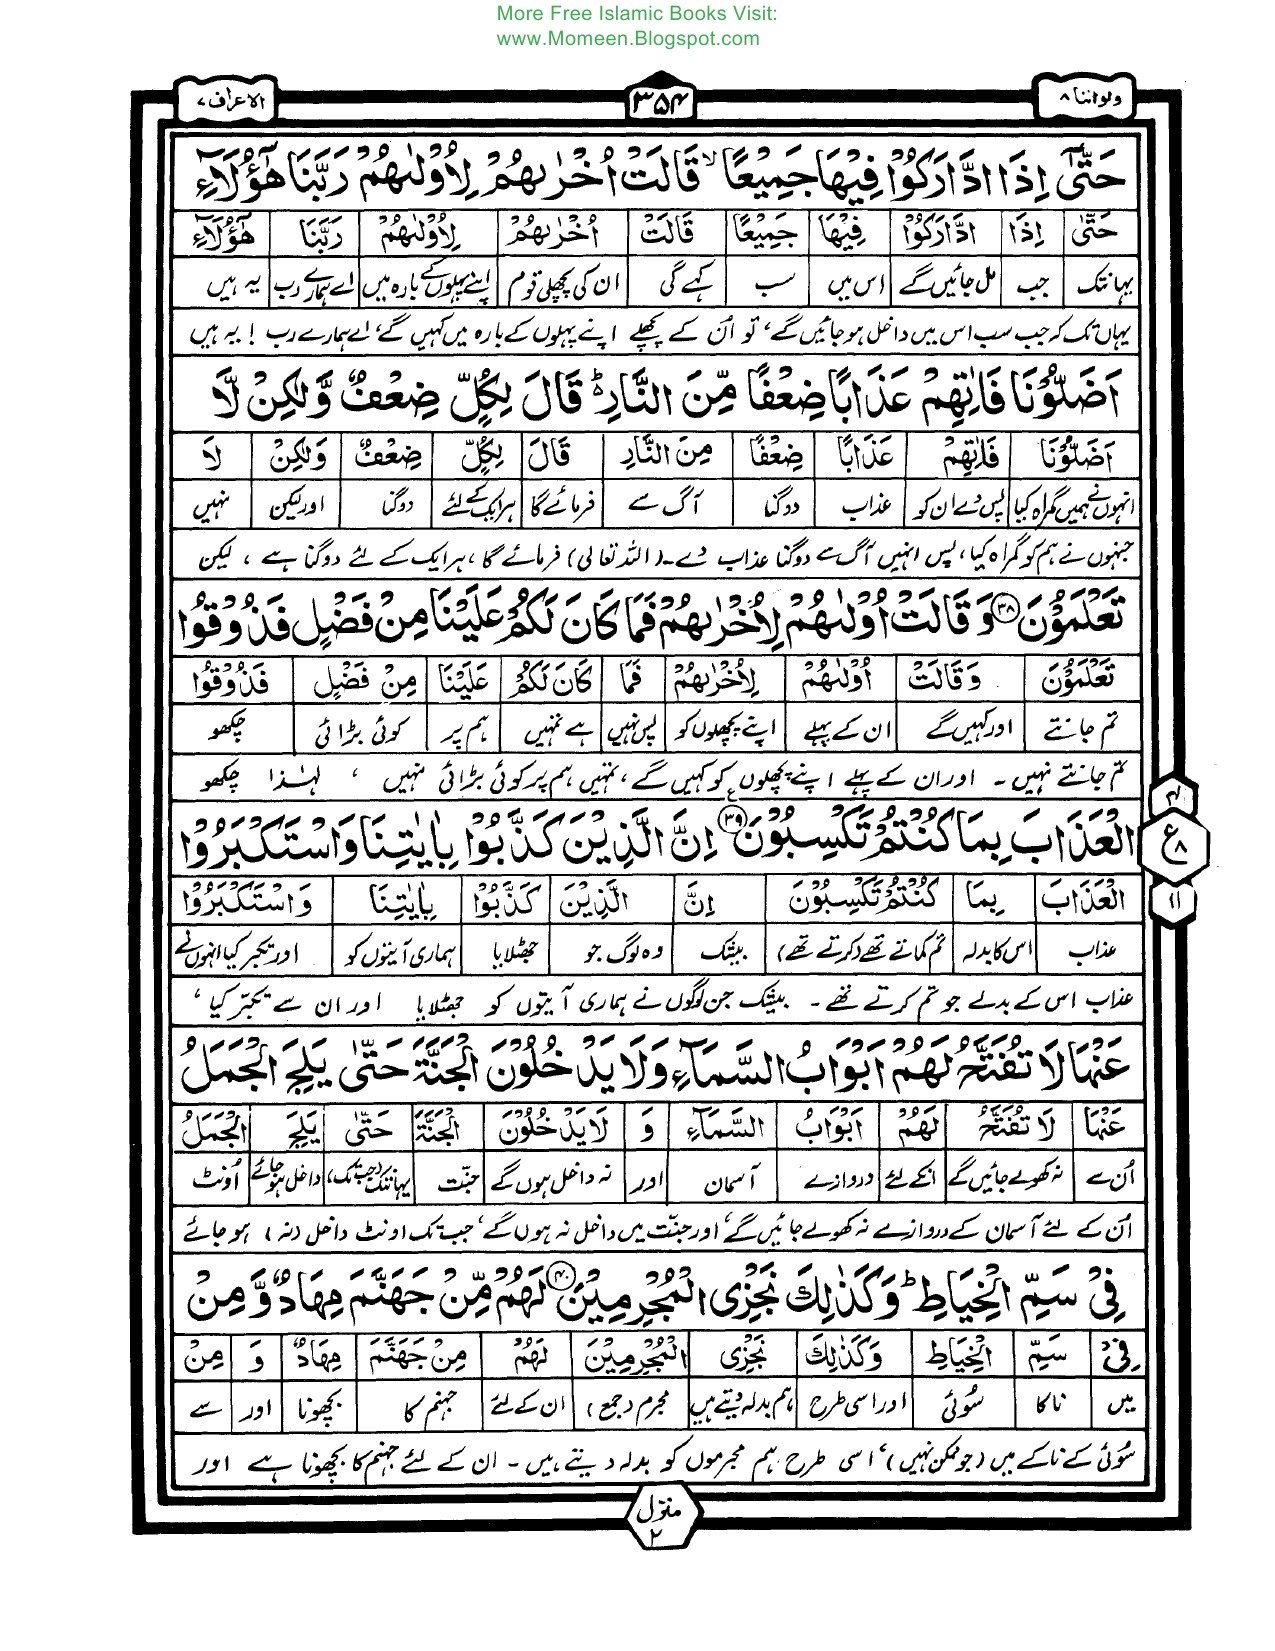 More Free Islamic Books Visit:
www.Momeen.Blogspot.com
ولواننا ۸
۳۵۴
الاعراف ۷
حَتّٰۤی اِذَا ادَّارَكُوْا فِیْهَا جَمِیْعًا ۙ قَالَتْ اُخْرٰىهُمْ لِاُوْلٰىهُمْ رَبَّنَا هٰۤؤُلَآءِ
حَتّٰۤی اِذَا ادَّارَكُوْا فِیْهَا جَمِیْعًا قَالَتْ اُخْرٰىهُمْ لِاُوْلٰىهُمْ رَبَّنَا هٰۤؤُلَآءِ
یہانتک جب مل جائیں گے اس میں سب کہے گی ان کی پچھلی قوم اپنے پہلوں کے بارہ میں اے ہمارے رب یہ ہیں
یہاں تک کہ جب سب اس میں داخل ہو جائیں گے، تو اُن کے پچھلے اپنے پہلوں کے بارہ میں کہیں گے، اے ہمارے رب ! یہ ہیں
اَضَلُّوْنَا فَاٰتِهِمْ عَذَابًا ضِعْفًا مِّنَ النَّارِ ؕ قَالَ لِكُلٍّ ضِعْفٌ وَّلٰكِنْ لَّا
اَضَلُّوْنَا فَاٰتِهِمْ عَذَابًا ضِعْفًا مِنَ النَّارِ قَالَ لِكُلٍّ ضِعْفٌ وَلٰكِنْ لَا
انہوں نے ہمیں گمراہ کیا پس دے ان کو عذاب دوگنا آگ سے فرمائے گا ہر ایک کے لئے دوگنا اور لیکن نہیں
جنہوں نے ہم کو گمراہ کیا، پس انہیں آگ سے دوگنا عذاب دے۔ (اللہ تعالیٰ) فرمائے گا، ہر ایک کے لئے دوگنا ہے ، لیکن
تَعْلَمُوْنَ ۳۸ وَقَالَتْ اُوْلٰىهُمْ لِاُخْرٰىهُمْ فَمَا كَانَ لَكُمْ عَلَیْنَا مِنْ فَضْلٍ فَذُوْقُوا
تَعْلَمُوْنَ وَقَالَتْ اُوْلٰىهُمْ لِاُخْرٰىهُمْ فَمَا كَانَ لَكُمْ عَلَیْنَا مِنْ فَضْلٍ فَذُوْقُوا
تم جانتے اور کہیں گے ان کے پہلے اپنے پچھلوں کو پس نہیں ہے تمہیں ہم پر کوئی بڑائی چکھو
تم جانتے نہیں ۔ اور ان کے پہلے اپنے پچھلوں کو کہیں گے ، تمہیں ہم پر کوئی بڑائی نہیں ، لہٰذا چکھو
الْعَذَابَ بِمَا كُنْتُمْ تَكْسِبُوْنَ ۳۹ ع اِنَّ الَّذِیْنَ كَذَّبُوْا بِاٰیٰتِنَا وَاسْتَكْبَرُوْا
۴
ع ۸
۱۱
الْعَذَابَ بِمَا كُنْتُمْ تَكْسِبُوْنَ اِنَّ الَّذِیْنَ كَذَّبُوْا بِاٰیٰتِنَا وَاسْتَكْبَرُوْا
عذاب اس کا بدلہ تم کماتے تھے (کرتے تھے) بیشک وہ لوگ جو جھٹلایا ہماری آیتوں کو اور تکبر کیا انہوں نے
عذاب اس کے بدلے جو تم کرتے تھے ۔ بیشک جن لوگوں نے ہماری آیتوں کو جھٹلایا اور ان سے تکبّر کیا ،
عَنْهَا لَا تُفَتَّحُ لَهُمْ اَبْوَابُ السَّمَآءِ وَلَا یَدْخُلُوْنَ الْجَنَّةَ حَتّٰی یَلِجَ الْجَمَلُ
عَنْهَا لَا تُفَتَّحُ لَهُمْ اَبْوَابُ السَّمَآءِ وَ لَا یَدْخُلُوْنَ الْجَنَّةَ حَتّٰی یَلِجَ الْجَمَلُ
اُن سے نہ کھولے جائیں گے انکے لئے دروازے آسمان اور نہ داخل ہوں گے جنّت یہانتک (جب تک) داخل ہو جائے اُونٹ
اُن کے لئے آسمان کے دروازے نہ کھولے جائیں گے، اور جنّت میں داخل نہ ہوں گے، جب تک اونٹ داخل (نہ) ہو جائے
فِیْ سَمِّ الْخِیَاطِ ؕ وَكَذٰلِكَ نَجْزِی الْمُجْرِمِیْنَ ۴۰ لَهُمْ مِّنْ جَهَنَّمَ مِهَادٌ وَّمِنْ
فِیْ سَمِّ الْخِیَاطِ وَكَذٰلِكَ نَجْزِی الْمُجْرِمِیْنَ لَهُمْ مِنْ جَهَنَّمَ مِهَادٌ وَ مِنْ
میں ناکا سُوئی اور اسی طرح ہم بدلہ دیتے ہیں مجرم (جمع) ان کے لئے جہنم کا بچھونا اور سے
سُوئی کے ناکے میں (جو ممکن نہیں)، اسی طرح ہم مجرموں کو بدلہ دیتے ہیں ۔ ان کے لئے جہنم کا بچھونا ہے اور
منزل ۲